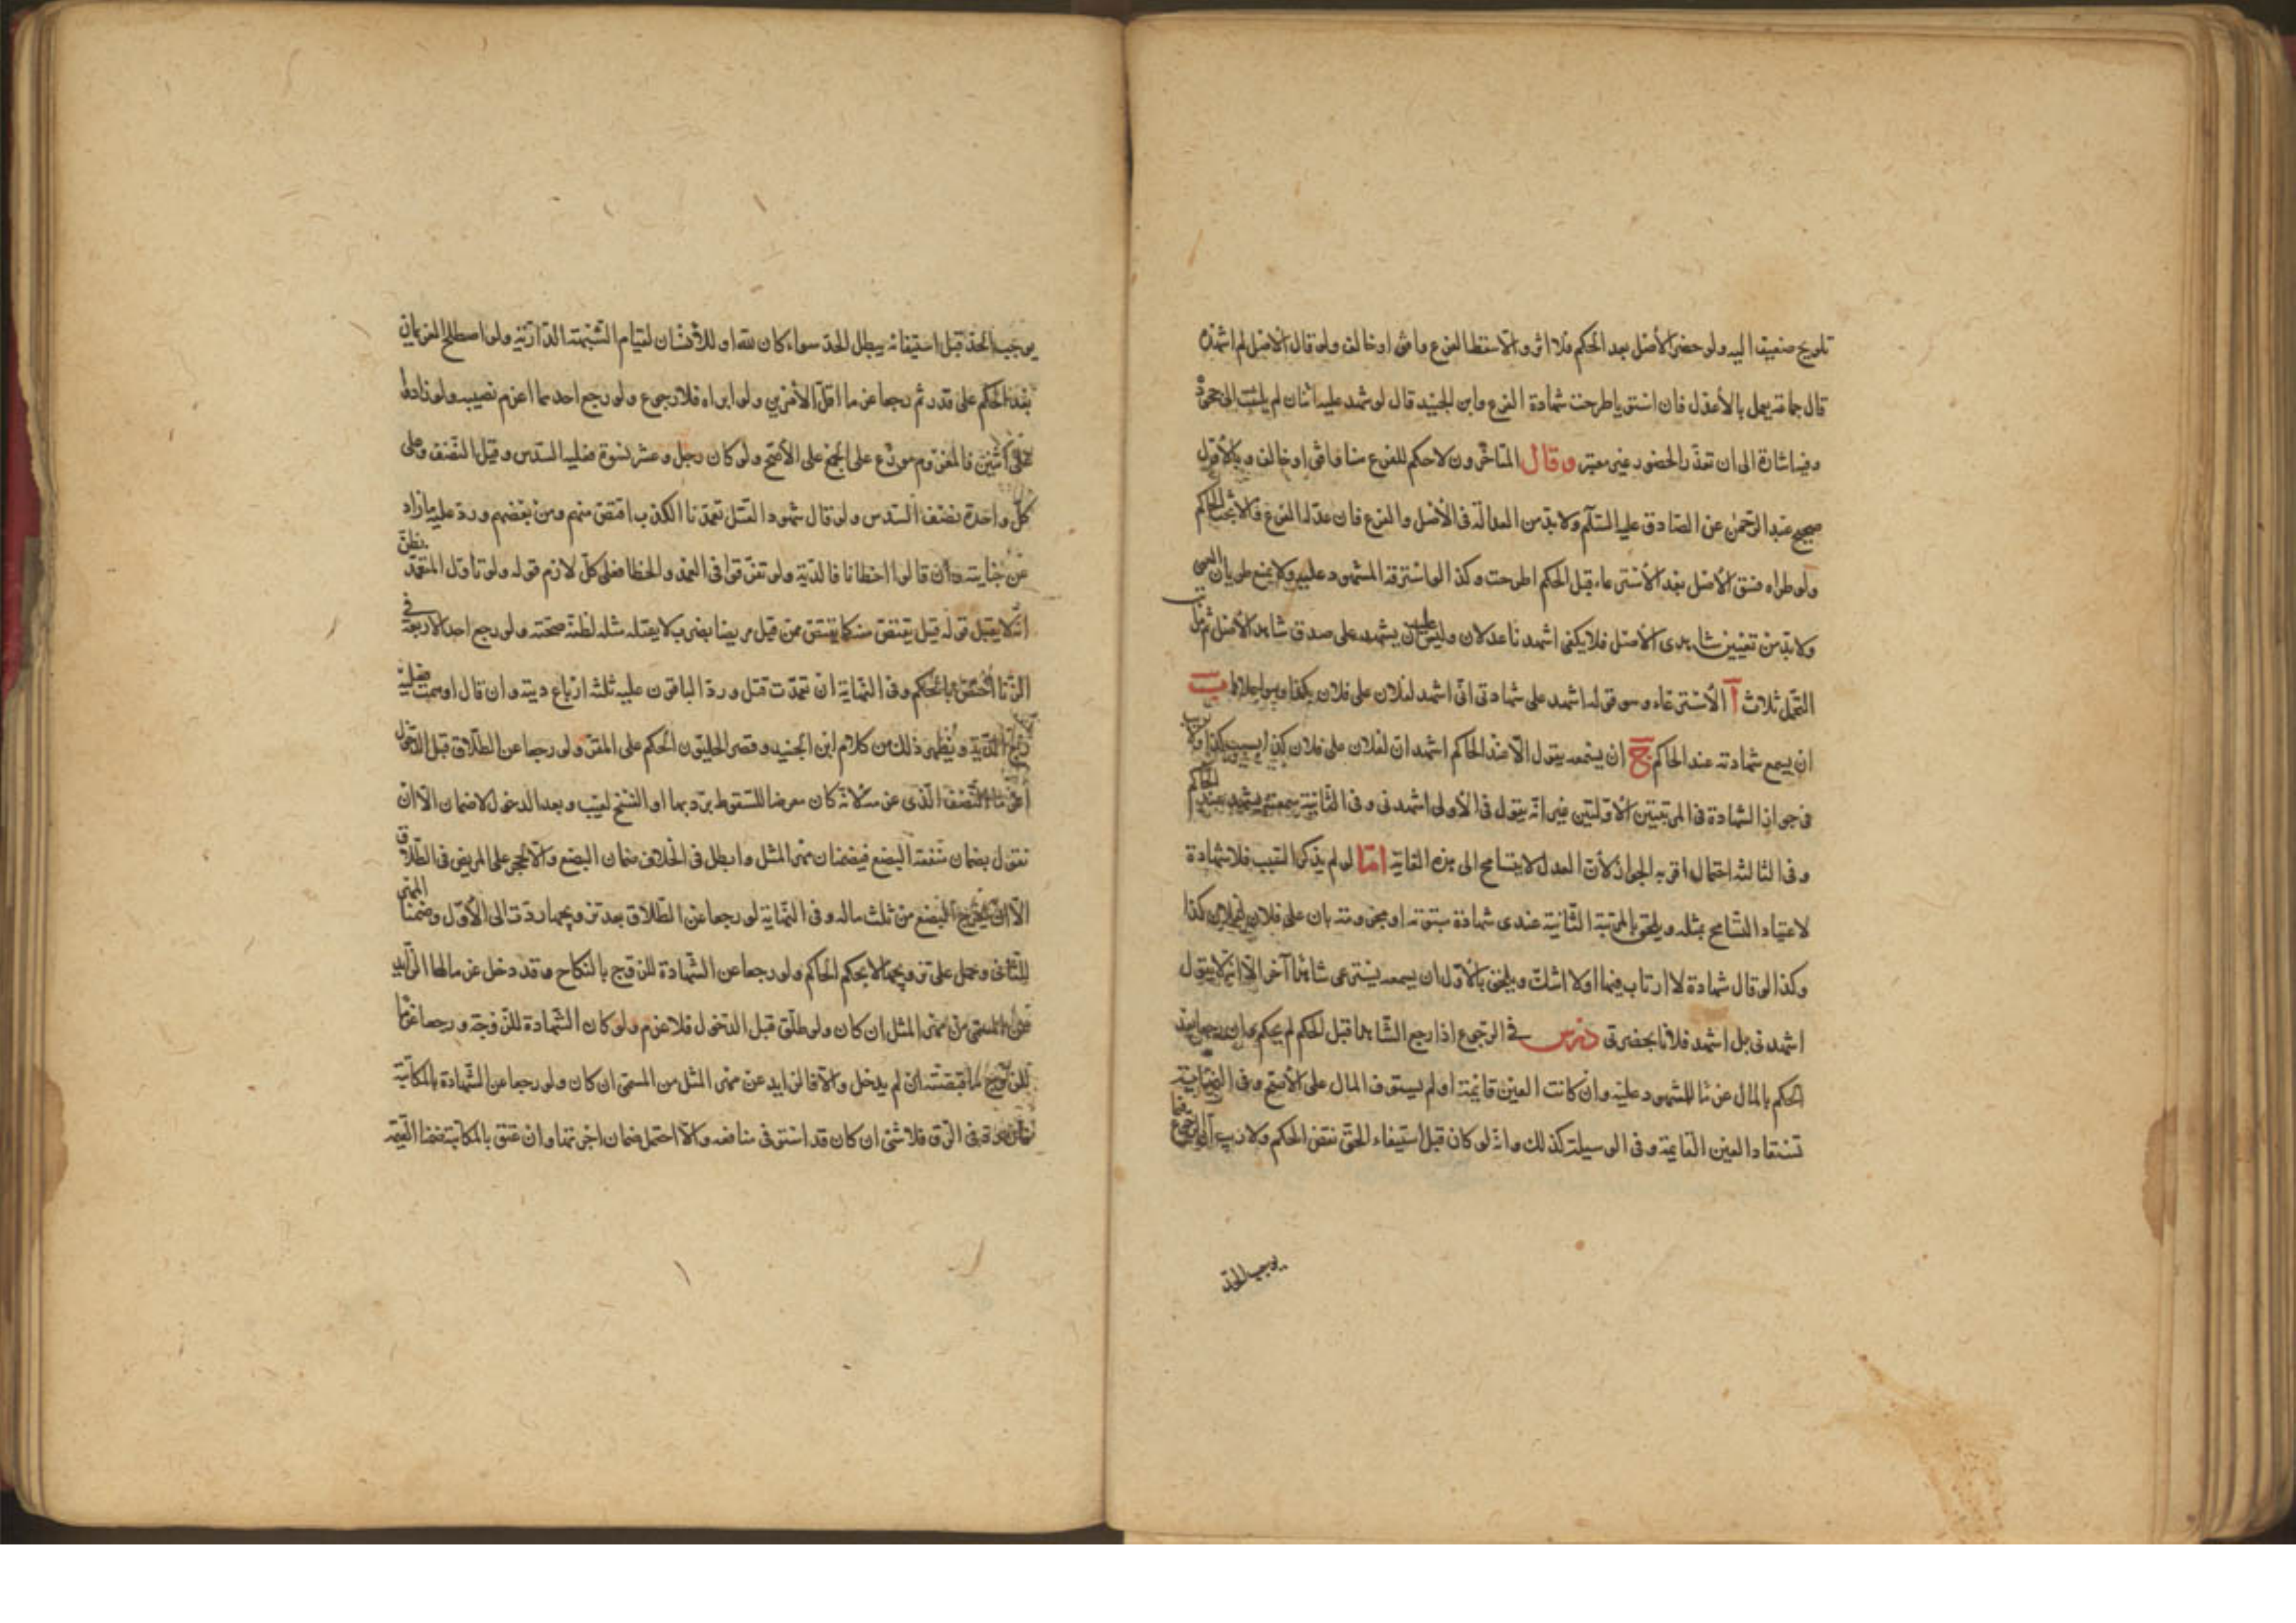 تلويح ضعيف اليه ولو حضر الأصل بعد الحكم فلا اثر والا سقط الفرع وافق او خالف ولو قال الاصل لم اشهده
قال جماعة يعمل بالأعدل فان استويا طرحت شهادة الفرع وابن الجنيد قال لو شهد عليه اثنان لم يلتفت الى جحوده
وفيه اشارة الى ان تعذر الحضور غير معتبر وقال المتأخرون لا حكم للفرع هنا وافق او خالف وبالأول
صحيح عبد الرحمن عن الصادق عليه السلام ولا بد من العدالة في الأصل والفرع فان عدله الفرع والا بحث الحاكم
ولو طراء فسق الأصل بعد الأسترعاء قبل الحكم اطرحت وكذا لو استرقه المشهود عليه ولا يمنع طريان العمى
ولا بد من تعيين شاهدى الأصل فلا يكفى اشهدنا عدلان وليس عليه ان يشهد على صدق شاهد الأصل ثم مراتب
التحمل ثلاث آ الأسترعاء وهو قوله اشهد على شهادتى انى اشهد لفلان على فلان بكذا وهو اجلاها ب
ان يسمع شهادته عند الحاكم ج ان يسمعه يقول لا عند الحاكم اشهد ان لفلان على فلان كذا بسبب كذا ولا ريب
في جواز الشهادة في المرتبتين الأولتين غير انه يقول في الأولى اشهدنى وفى الثانية سمعته يشهد عند الحاكم
وفى الثالثة احتمال اقربه الجواز لأن العدل لا يتسامح الى هذه الغاية امّا لو لم يذكر السبب فلا شهادة
لاعتياد التسامح بمثله ويلحق بالمرتبة الثانية عندى شهادة مبتوتة او مجزومة بان على فلان لفلان كذا
وكذا لو قال شهادة لا ارتاب فيها او لا اشك ويلحق بالأول ان يسمعه يسترعى شاهدا آخر الا انه لا يقول
اشهدنى بل اشهد فلانا بحضرتى درس فى الرجوع اذا رجع الشاهدا قبل الحكم لم يحكم وان رجعا بعد
الحكم بالمال غرما للمشهود عليه وان كانت العين قائمة او لم يستوف المال على الأصح وفى النهاية
تستعاد العين القايمة وفى الوسيلة كذلك وانه لو كان قبل استيفاء الحق نقض الحكم ولا ريب ان الرجوع فيما
يوجب الحد
يوجب الحد قبل استيفائه يبطل الحد سواء كان لله او للأنسان لقيام الشبهة الدارئة ولو اصطلح الغريمان
بعد الحكم على قدر ثم رجعا غرما اقل الأمرين ولو ابراه فلا رجوع ولو رجع احدهما اغرم نصيبه ولو زادوا
على اثنين فالمغروم موزع على الجمع على الأصح ولو كان رجل وعشر نسوة فعليه السدس وقيل النصف وعلى
كل واحدة نصف السدس ولو قال شهود القتل تعمدنا الكذب اقتص منهم ومن بعضهم ورد عليه ما زاد
عن جنايته وان قالوا اخطانا فالدية ولو تفرقوا في العمد والخطا فعلى كل لازم قوله ولو تأول المتعمد بظن
انه لا يقبل قوله قيل يقتص منه كما يقتص ممن قتل مريضا بضرب لا يقتله مثله لظنه صحته ولو رجع احد الأربعة في
الزنا اختص بالحكم وفى النهاية ان تعمدت قتل ورد الباقون عليه ثلثة ارباع ديته وان قال اوهمت فعليه
ربع الدية ويظهر ذلك من كلام ابن الجنيد وقصر الحليون الحكم على المقر ولو رجعا عن الطلاق قبل الدخول
اغرما النصف الذى غرمه لانه كان معرضا للسقوط بردتها او الفسخ لعيب وبعد الدخول لا ضمان الا ان
نقول بضمان منفعة البضع فيضمنان مهر المثل وابطل في الخلاف ضمان البضع والا لحجر على المريض في الطلاق
الا ان يخرج البضع من ثلث ماله وفى النهاية لو رجعا عن الطلاق بعد تزويجها ردت الى الأول وضمنا المهر
للثانى وحمل على تزويجها لا بحكم الحاكم ولو رجعا عن الشهادة للزوج بالنكاح وقد دخل غرما لها الزايد
عن المسمى من مهر المثل ان كان ولو طلق قبل الدخول فلا غرم ولو كان الشهادة للزوجة ورجعا غرما
للزوج ما قبضته ان لم يدخل والا فالزايد عن مهر المثل من المسمى ان كان ولو رجعا عن الشهادة بالمكاتبة
فان رد في الرق فلا شئ ان كان قد استوفى منافعه والا احتمل ضمان اجرتها وان عتق بالمكاتبة ضمنا القيمة